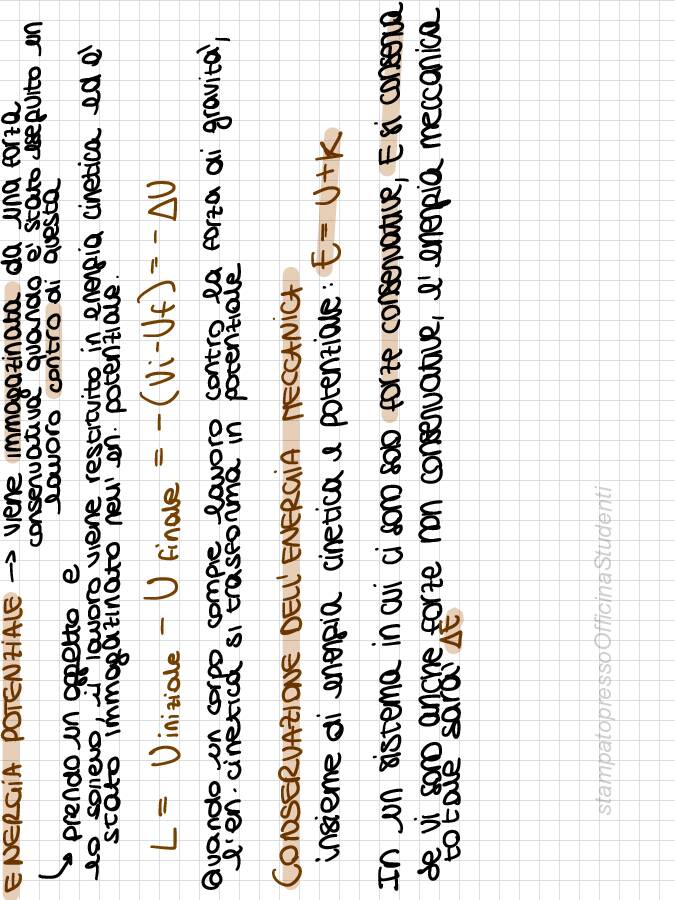 ENERGIA POTENZIALE -> viene immagazinata da una forza
conservativa quando è stato eseguito un
lavoro contro di questa
prendo un oggetto e
lo sollevo, il lavoro viene restituito in energia cinetica ed è
stato immagazinato nell'en. potenziale.
L = U iniziale - U finale = -(Ui-Uf) = -ΔU
Quando un corpo compie lavoro contro la forza di gravità,
l'en. cinetica si trasforma in potenziale
CONSERVAZIONE DELL'ENERGIA MECCANICA
insieme di energia cinetica e potenziale: E = U+K
In un sistema in cui ci sono solo forze conservative, E si conserva
se vi sono anche forze non conservative, l'energia meccanica
totale sarà ΔE
stampatopressoOfficinaStudenti